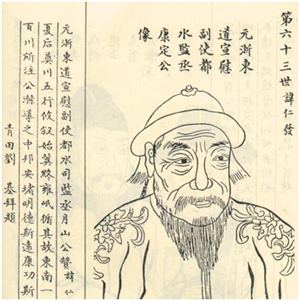 第六十三世諱仁發
元浙東
道宣慰
副使都
水監丞
康定公
像
元浙東道宣慰副使都水司監丞月山公贊 諱仁
夏后奠川五行攸敘始冀終雍岷循其故東南一
百川所注公濬導之中邦安堵明德斯遠康功斯
青田劉 基拜題